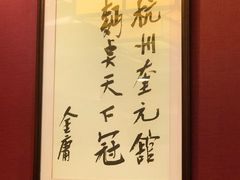 杭州奎元館
麪點天下冠
金庸